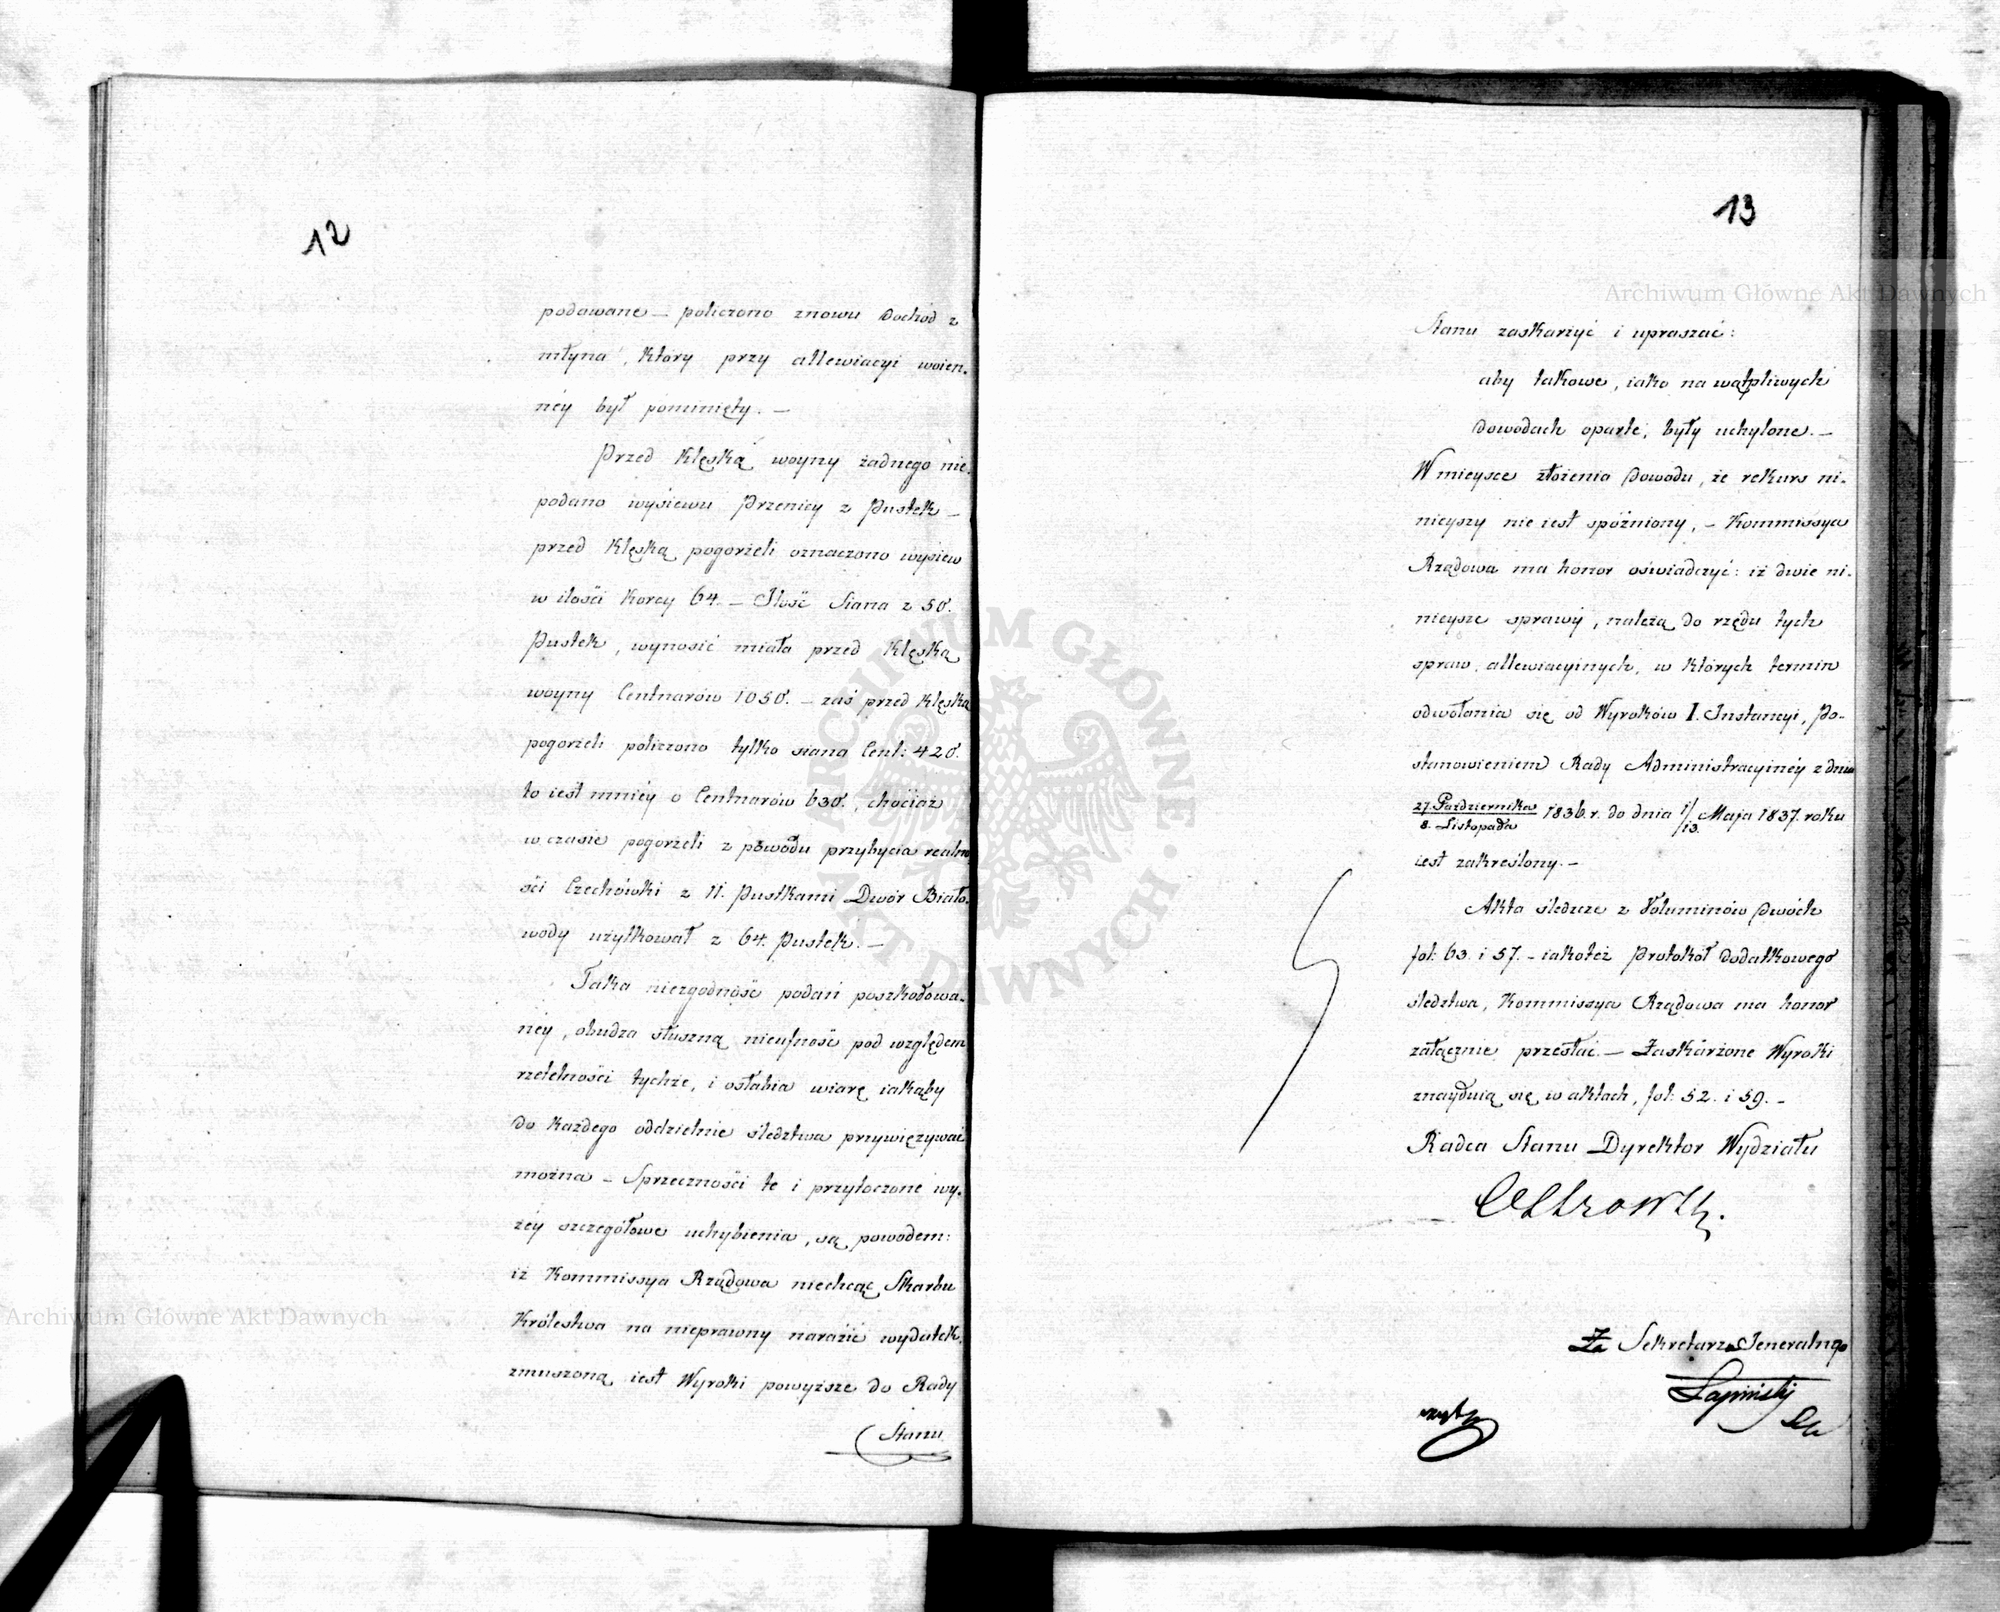 12
podawane – policzono znowu dochód z
młyna, który przy allewiacyi woien-
ney był pominięty. –
Przed klęską woyny żadnego nie-
podano wysiewu Przenicy z Pustek –
przed klęską pogorzeli oznaczono wysiew
w ilości korcy 64. – Ilość Siana z 50.
Pustek, wynosić miała przed klęską
woyny Centnarów 1050. – zaś przed klęską
pogorzeli policzono tylko siana Cent: 420.
to iest mniey o Centnarów 630., chociaż
w czasie pogorzeli z powodu przybycia realno-
ści Czechówski z 11. Pustkami Dwór Biało-
wody użytkował z 64. Pustek. –
Taka niezgodność podań poszkodowa-
ney, obudza słuszną nieufność pod względem
rzetelności tychże, i osłabia wiarę iakąby
do każdego oddzielnie śledztwa przywięzywać
można – Sprzeczności te i przytoczone wy-
żey szczegółowe uchybienia, są powodem:
iż Kommissya Rządowa niechcąc Skarbu
Królestwa na nieprawny narazić wydatek,
zmuszoną iest Wyroki powyższe do Rady
Stanu
13
Stanu zaskarżyć i upraszać:
aby takowe, iako na wątpliwych
dowodach oparte, były uchylone. –
W mieysce złożenia dowodu, że rekurs ni-
nieyszy nie iest spóźniony, – Kommissya
Rządowa ma honor oświadczyć: iż dwie ni-
nieysze sprawy, należą do rzędu tych
spraw allewiacyinych, w których termin
odwołania się od Wyroków I. Instancyi, Po-
stanowieniem Rady Administracyiney z dnia
27. Października / 8. Listopada 1836. r. do dnia 1/13. Maja 1837. roku
iest zakreślony. –
Akta śledcze z Voluminów dwóch
fol: 63. i 57. – iakoteż Protokół dodatkowego
śledztwa, Kommissya Rządowa ma honor
załącznie przesłać. – Zaskarżone Wyroki
znayduią się w aktach, fol: 52. i 59. –
Radca Stanu Dyrektor Wydziału
Za Sekretarza Jeneralnego
Łapiński
Archiwum Główne Akt Dawnych
Archiwum Główne Akt Dawnych
ARCHIWUM GŁÓWNE AKT DAWNYCH